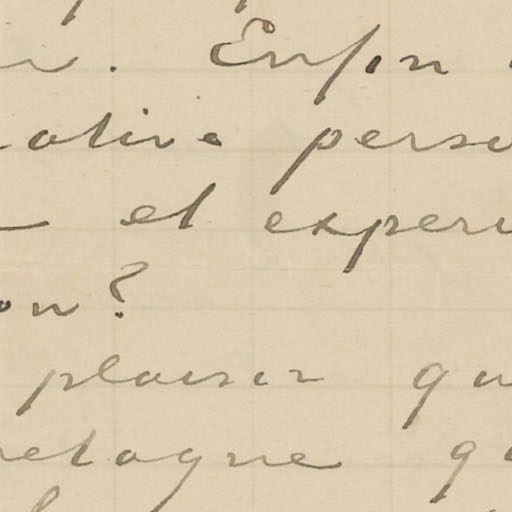 . Enfin
ative perse
et experi
on?
plaisir qu
retagne qu